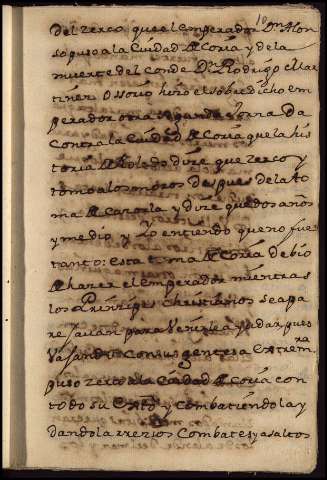 del zerco que el emperador Dn Alon
so puso a la Ciudad de Coria y de la
muerte del conde Dn Rodrigo el Mar
tinez Ossorio hizo el sobre dicho em
perador otra segunda Jorna Da
Contra la Ciudad de Coria que la his
toria de toledo dize que zerco y
tomo a los moros despues de la to
ma de Cazorla y dize que dos años
y medio y Yo entiendo que no fue
tanto: esta toma de Coria debio
de hazer el emperador mientras
los Prinzipes christianos se apa
rejauan para Venirle a yudar, pues
Vajando Con sus gentes a Extrema
puso zerco a la Ciudad de Coria con
todo su Exto y combatiendola y
dandola rezios Combates y asaltos